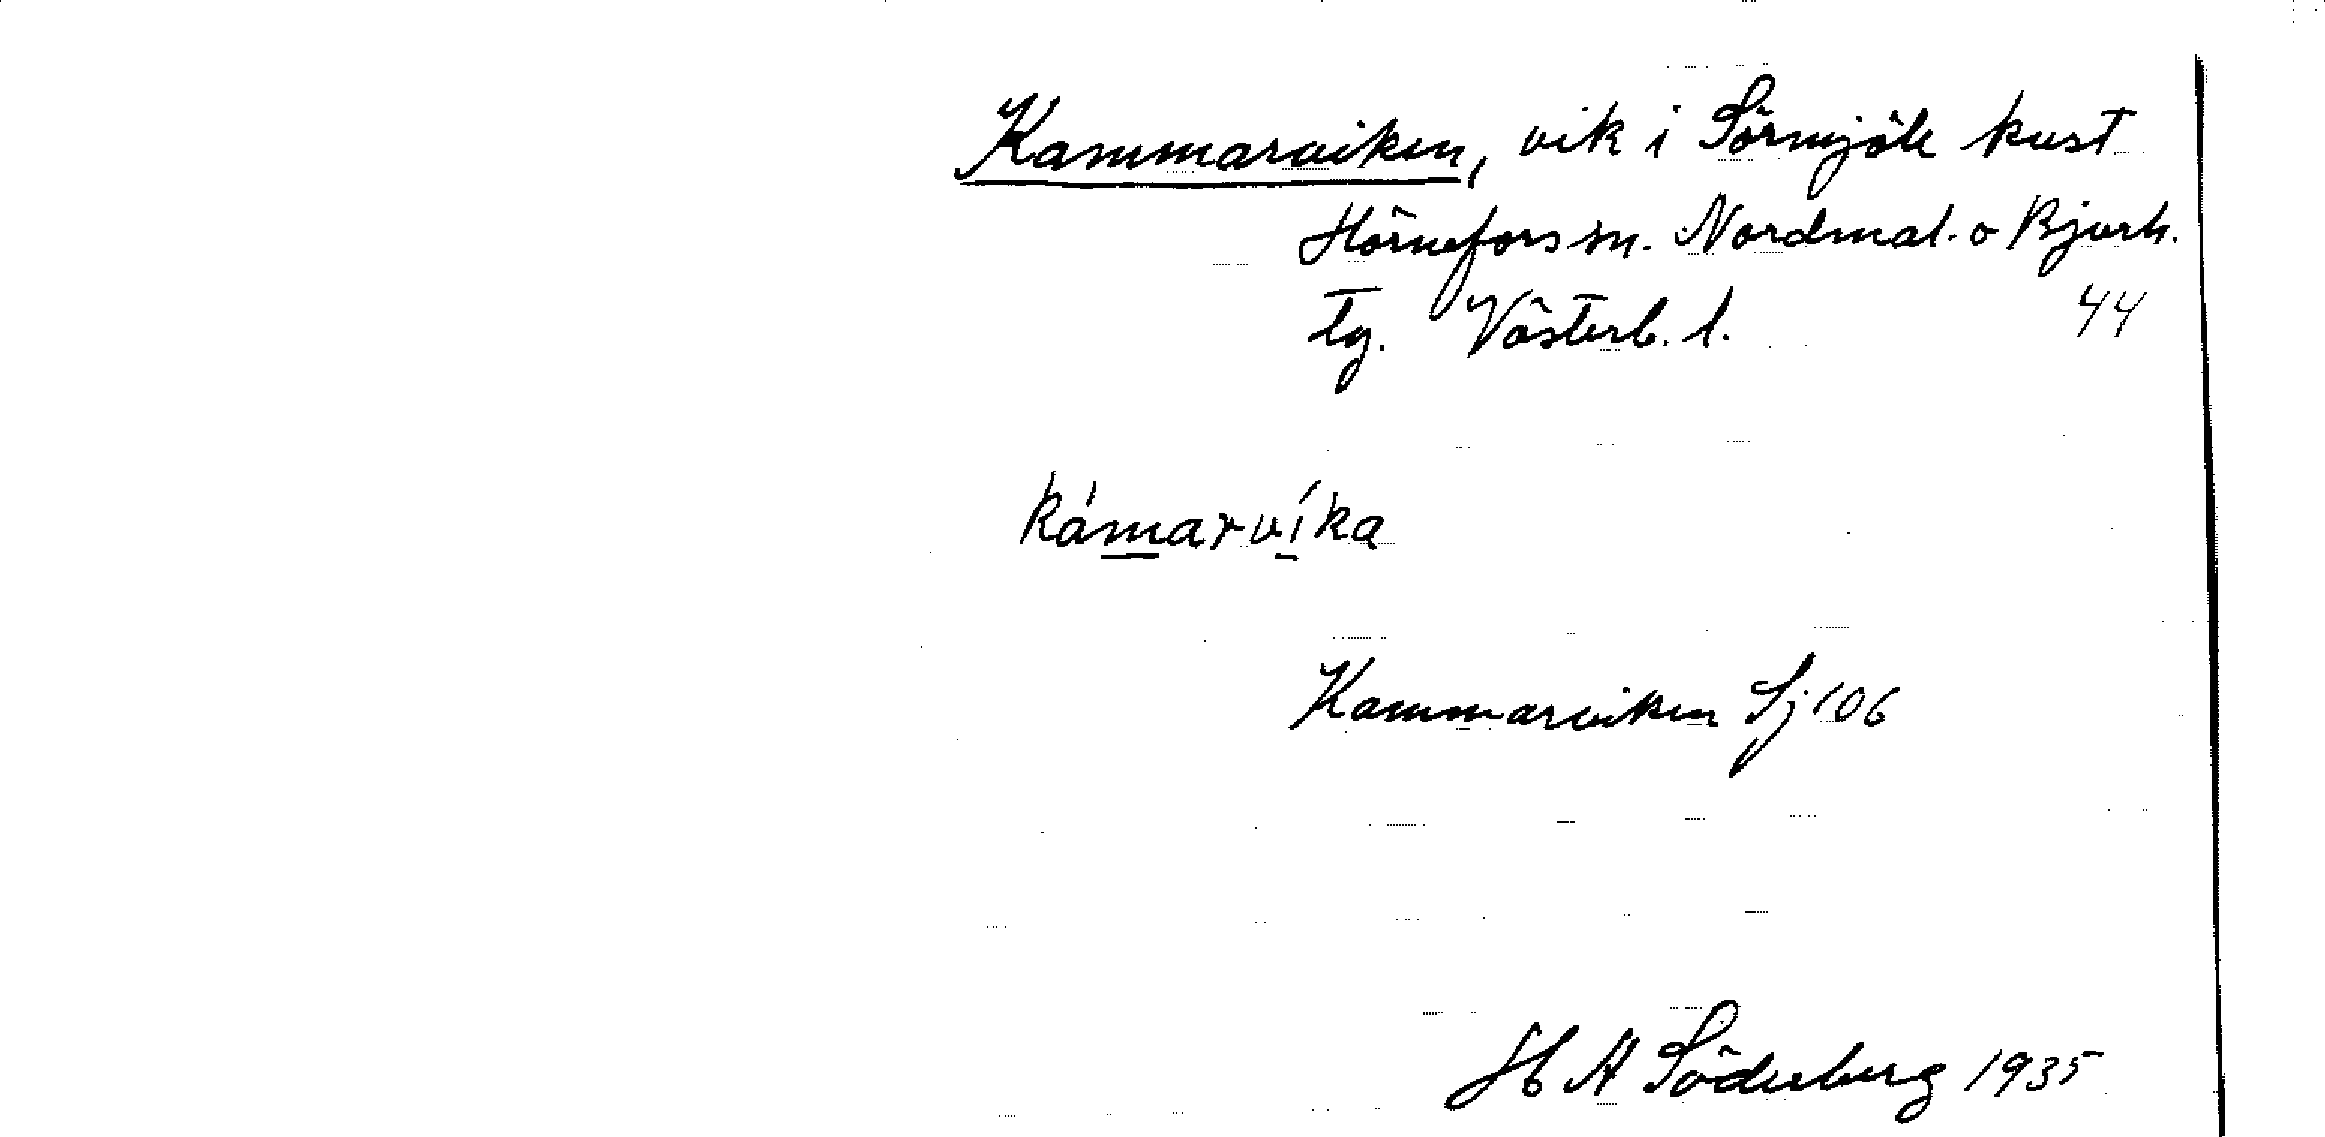 Kammarviken, vik i Sörmjöle kust
Hörnefors sn. Nordmal. o Bjurh.
tg. Västerb. l. 44
kámarvíka
Kammarviken Sj 106
H A Söderberg 1935